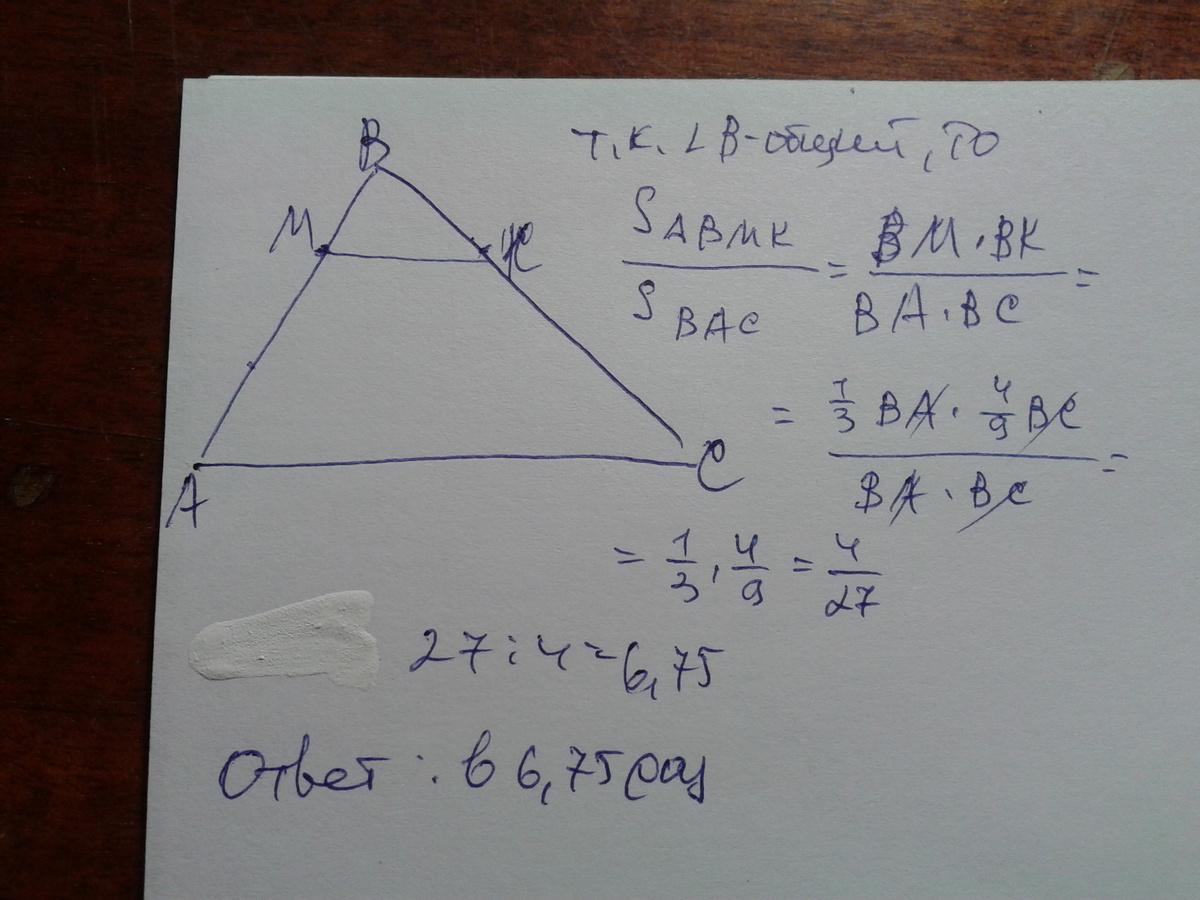 B
M
K
A
C
т.к. ∠B-общей, то
S ABMK / S BAC = BM·BK / BA·BC =
= 1/3 BA · 4/9 BC / BA · BC =
= 1/3 · 4/9 = 4/27
27:4=6,75
Ответ: в 6,75 раз